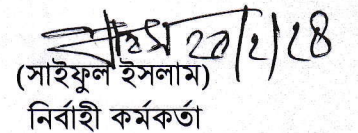 ২০/২/২৪
(সাইফুল ইসলাম)
নির্বাহী কর্মকর্তা